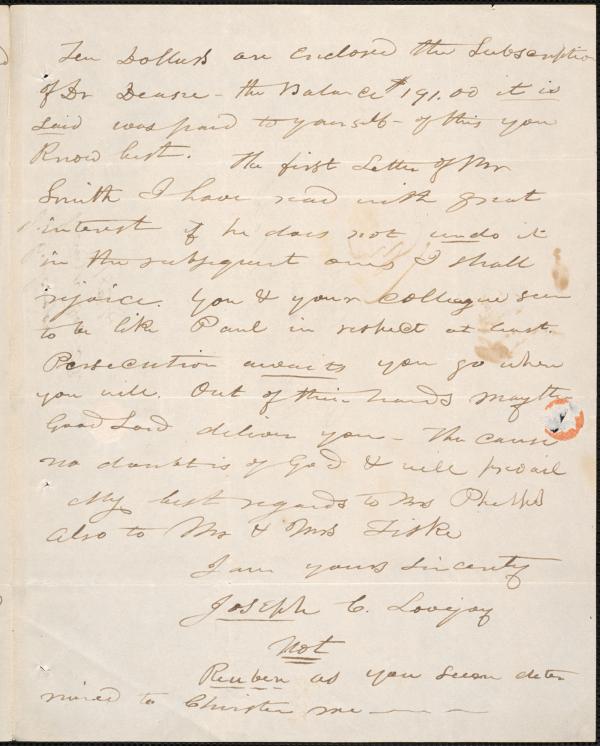 Ten Dollars are enclosed the Subscription
of Dr Deane - the Balance $191.00 it is
said was paid to yourself - of this you
Know best. The first Letter of Mr
Smith I have read with great
interest if he does not undo it
in the subsequent ones I shall
rejoice. You & your colleague seem
to be like Paul in respect at least.
Persecution awaits you go when
you will. Out of their hands may the
Good Lord deliver you - The cause
no doubt is of God & will prevail
My best regards to Mrs Phelps
also to Mr & Mrs Fiske
I am yours sincerely
Joseph C. Lovejoy
Not
Reuben as you seem deter
mined to Christen me